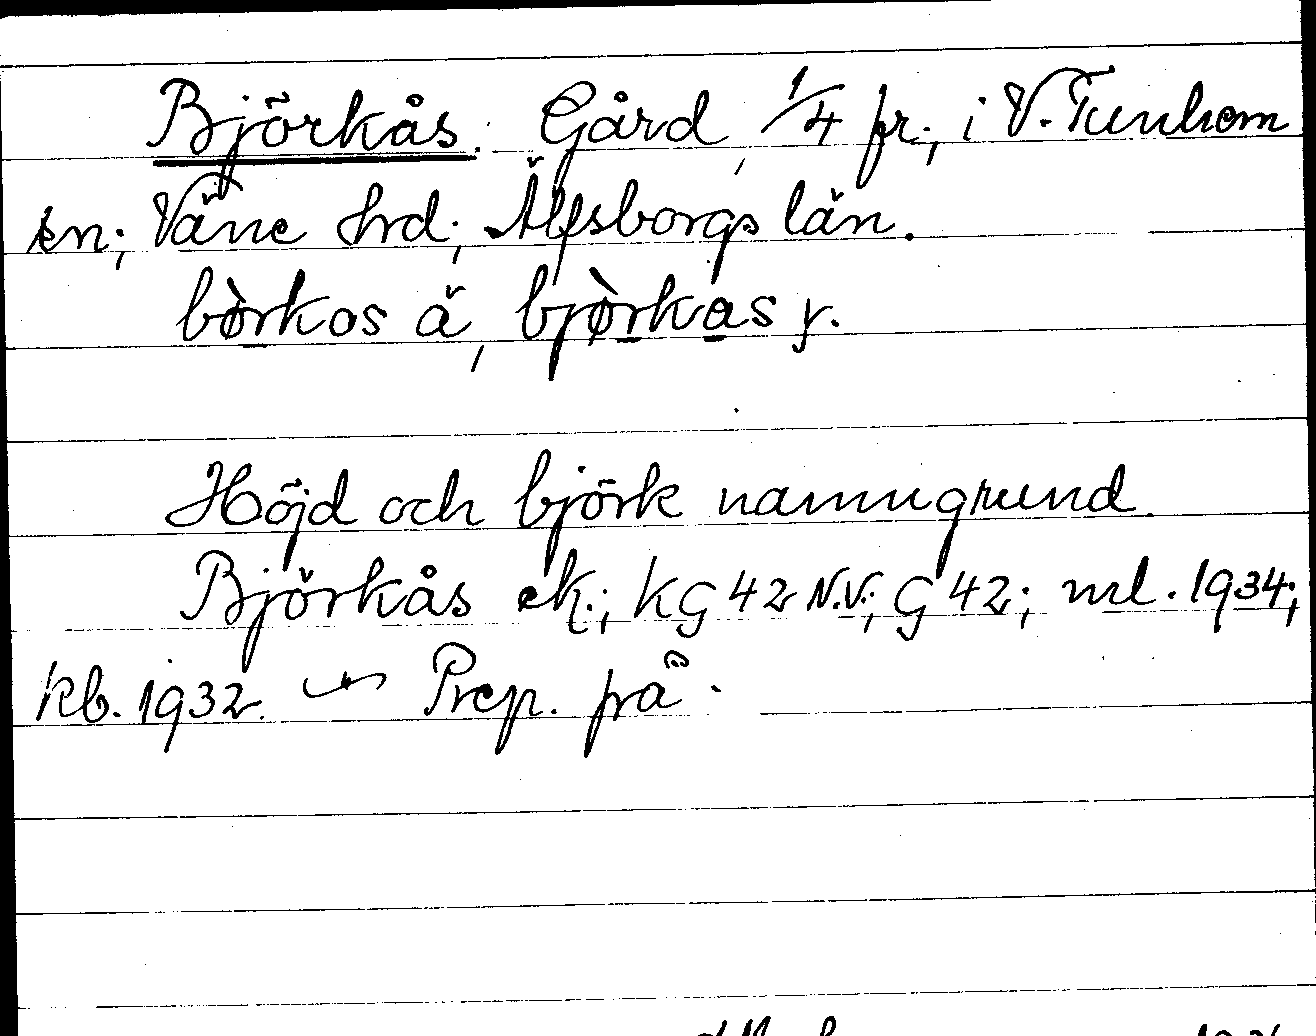 Björkås. Gård, 1/4 fr.; i V. Tunhem
sn; Väne hrd; Älfsborgs län.
bòrkos ä, bjòrkas y.
Höjd och björk namngrund.
Björkås ek.; KG 42 N.V.; G 42; ml. 1934;
kb. 1932. — Prep. på.